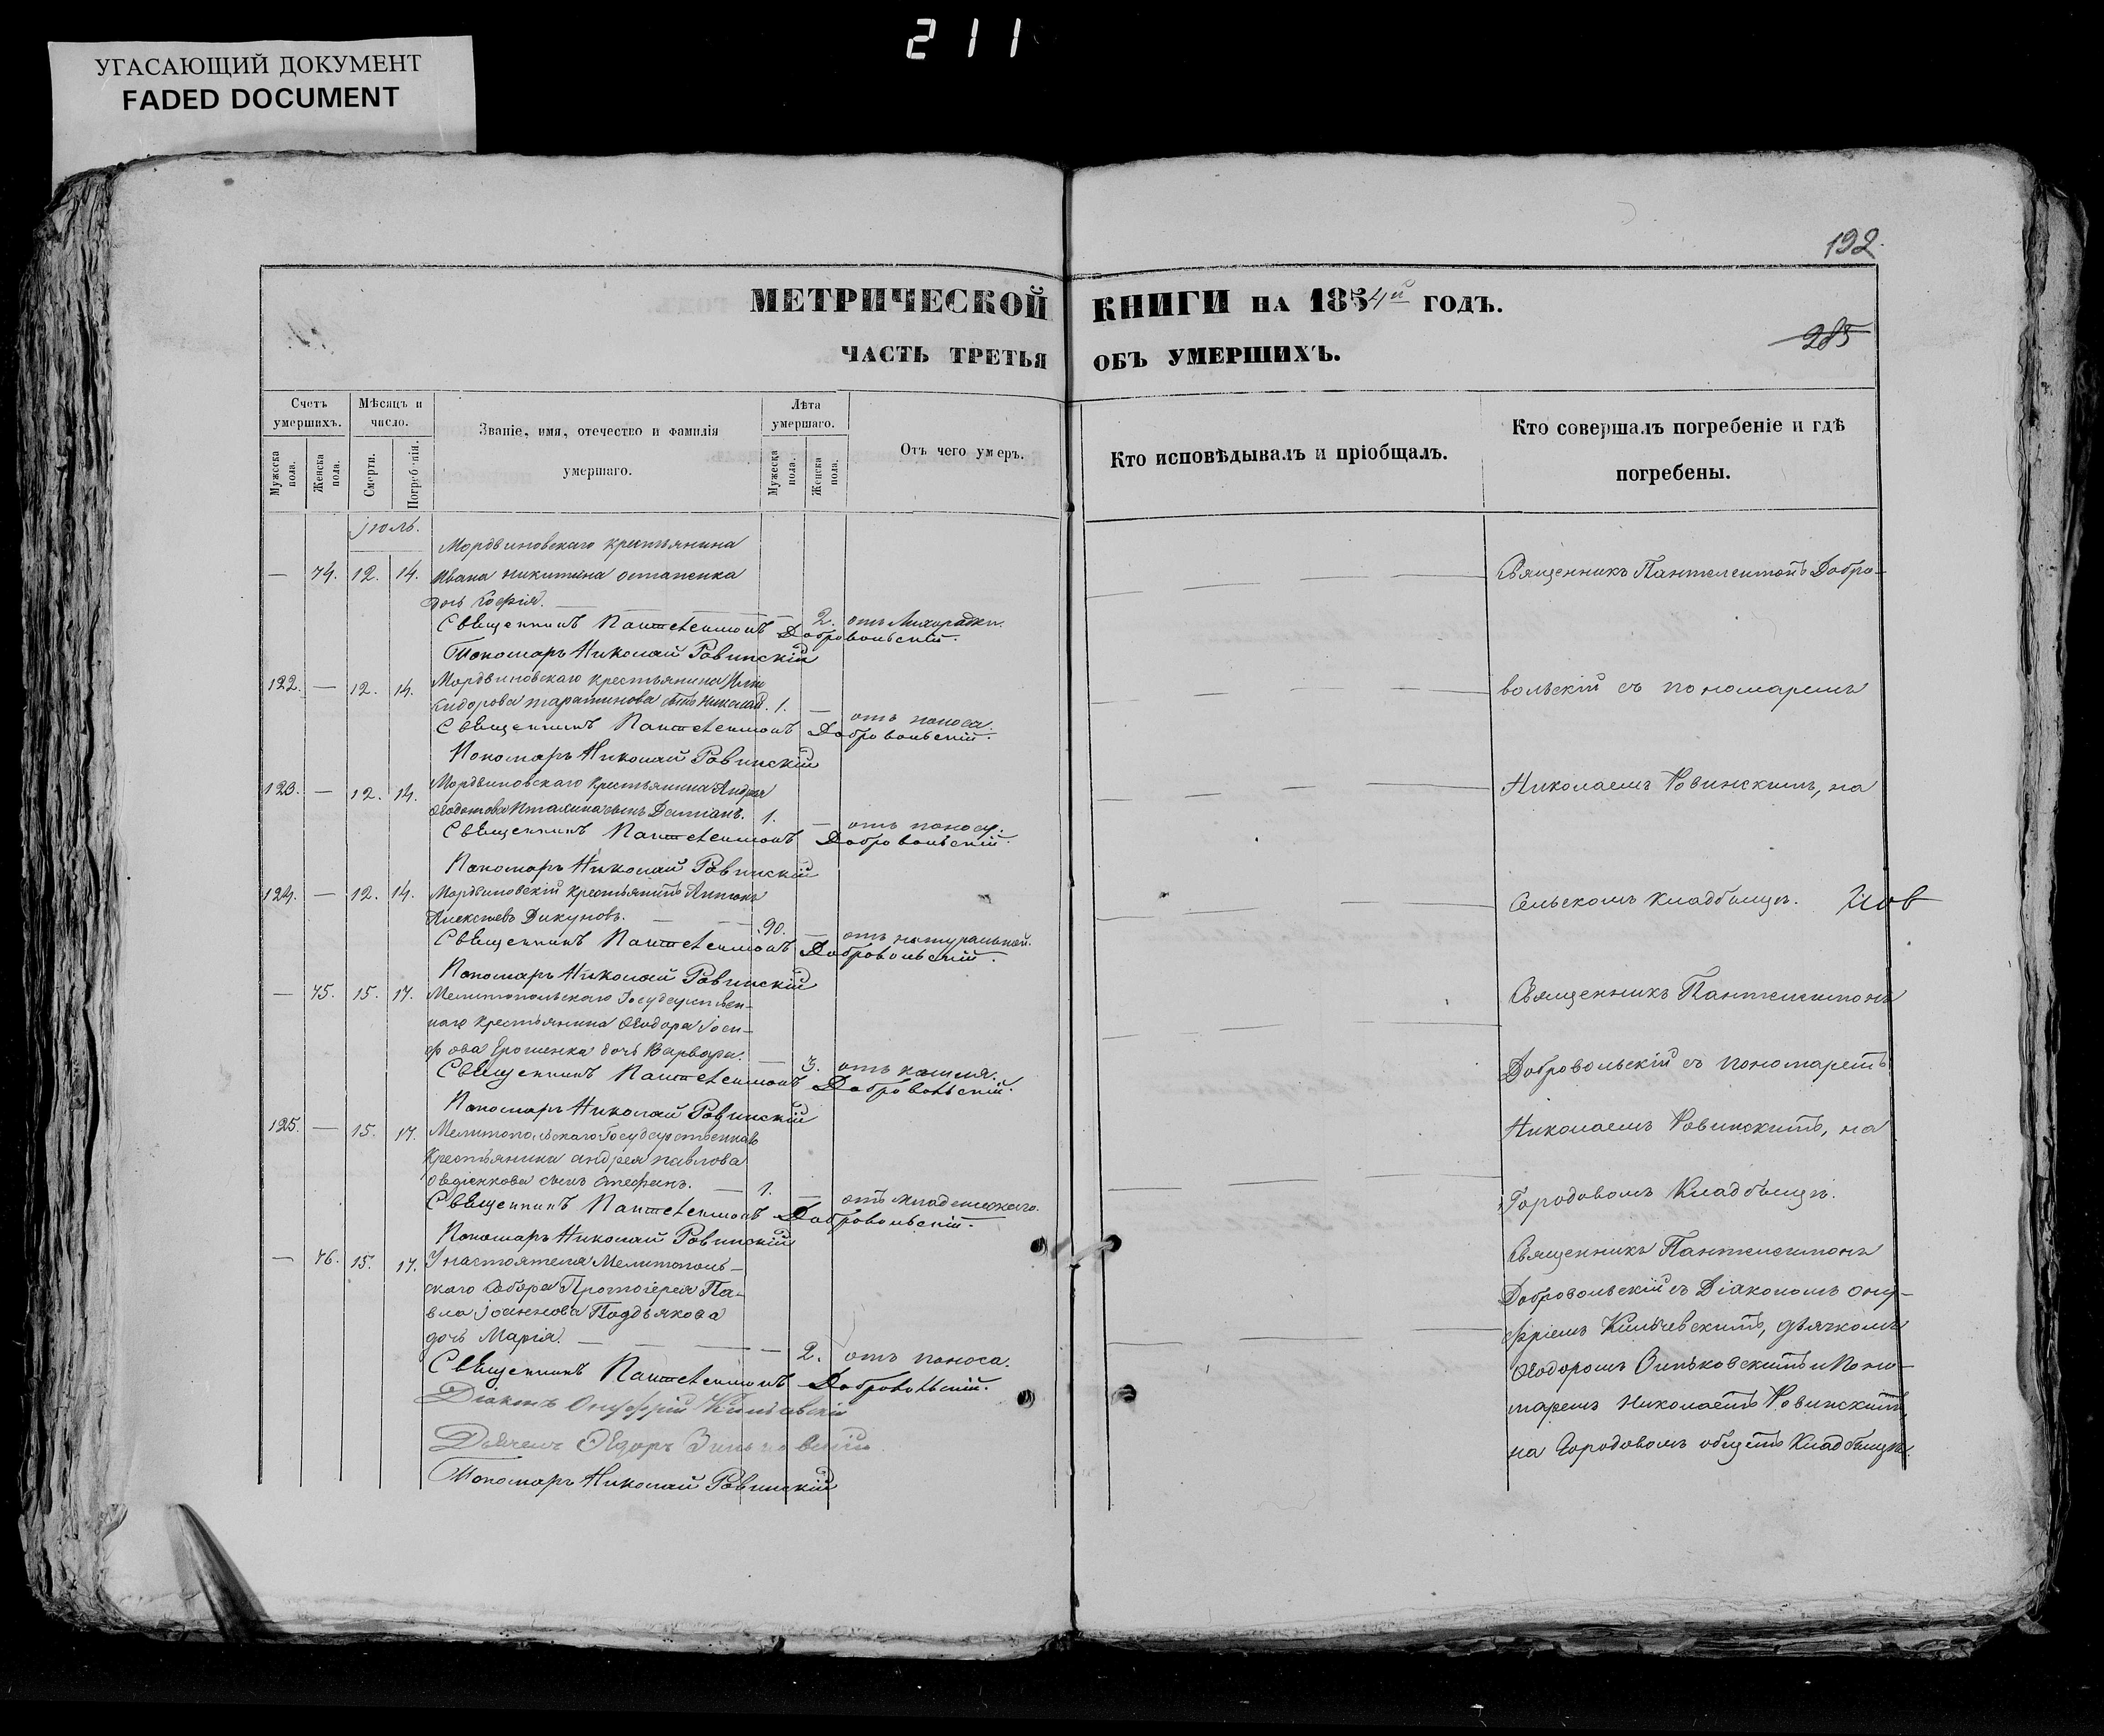 211
УГАСАЮЩИЙ ДОКУМЕНТ
FADED DOCUMENT
192.
МЕТРИЧЕСКОЙ КНИГИ НА 1854й ГОДЪ.
285
ЧАСТЬ ТРЕТЬЯ ОБЪ УМЕРШИХЪ.
Счетъ умершихъ.
Мужеска пола.
Женска пола.
Мѣсяцъ и число.
Смерти.
Погребенія.
Званіе, имя, отечество и фамилія
умершаго.
Лѣта умершаго.
Мужеска пола.
Женска пола.
Отъ чего умеръ.
Кто исповѣдывалъ и пріобщалъ.
Кто совершалъ погребеніе и гдѣ
погребены.
Іюль.
Мордвиновскаго крестьянина
— 74. 12. 14. Ивана Никитина Остапенка
дочь Софія. — 2. отъ Лихорадки.
Священникъ Пантелеимонъ Добровольскій.
Пономарь Николай Ровинскій
122. — 12. 14. Мордвиновскаго крестьянина
Сидорова сынъ Николай. 1. — отъ поноса.
Священникъ Пантелеимонъ Добровольскій.
Пономарь Николай Ровинскій
123. — 12. 14. Мордвиновскаго крестьянина Андрея
Ѳедотова сынъ Даміанъ. 1. — отъ поносу.
Священникъ Пантелеимонъ Добровольскій.
Пономарь Николай Ровинскій
124. — 12. 14. Мордвиновскій крестьянинъ Антонъ
Алексѣевъ Дикуновъ. — 90. — отъ натуральной.
Священникъ Пантелеимонъ Добровольскій.
Пономарь Николай Ровинскій
— 75. 15. 17. Мелитопольскаго Государствен-
наго крестьянина Ѳеодора Іоси-
фова Ерошенка дочь Варвара. — 3. отъ кашля.
Священникъ Пантелеимонъ Добровольскій.
Пономарь Николай Ровинскій
125. — 15. 17. Мелитопольскаго Государственнаго
крестьянина Андрея Павлова
Овдіенкова сынъ Стефанъ. — 1. — отъ младенческаго.
Священникъ Пантелеимонъ Добровольскій.
Пономарь Николай Ровинскій
— 76. 15. 17. У настоятеля Мелитополь-
скаго Собора Протоіерея Па-
вла Іоаннова Подьякова
дочь Марія. — 2. отъ поноса.
Священникъ Пантелеимонъ Добровольскій.
Діаконъ Онуфрій
Дьячекъ Ѳедоръ Зиньковскій.
Пономарь Николай Ровинскій
Священникъ Пантелеимонъ Добро-
вольскій съ пономаремъ
Николаемъ Ровинскимъ, на
Сельскомъ кладбищѣ.
Священникъ Пантелеимонъ
Добровольскій съ пономаремъ
Николаемъ Ровинскимъ, на
Городовомъ Кладбищѣ.
Священникъ Пантелеимонъ
Добровольскій съ Діакономъ Ону-
фріемъ дьячкомъ
Ѳеодоромъ Зиньковскимъ и Поно-
маремъ Николаемъ Ровинскимъ,
на Городовомъ общемъ Кладбищѣ.